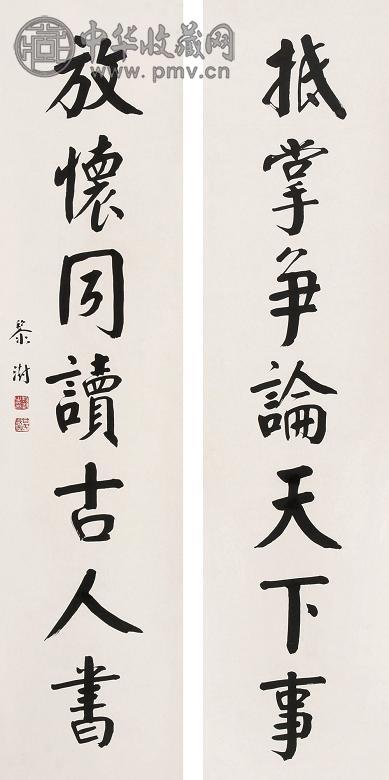 中华收藏网
www.pmv.cn
抵掌争論天下事
放懷同讀古人書